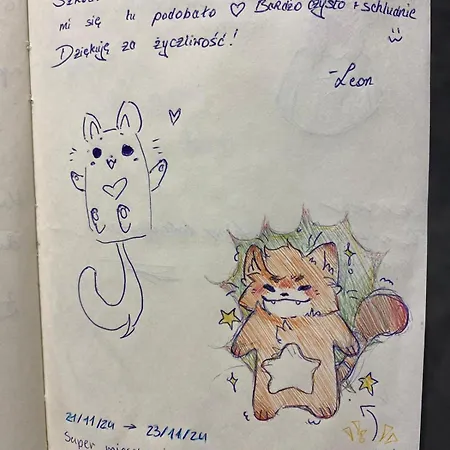 mi się tu podobało ♡ Bardzo czysto i schludnie
Dziękuję za życzliwość!
-Leon
21/11/24 → 23/11/24
Super